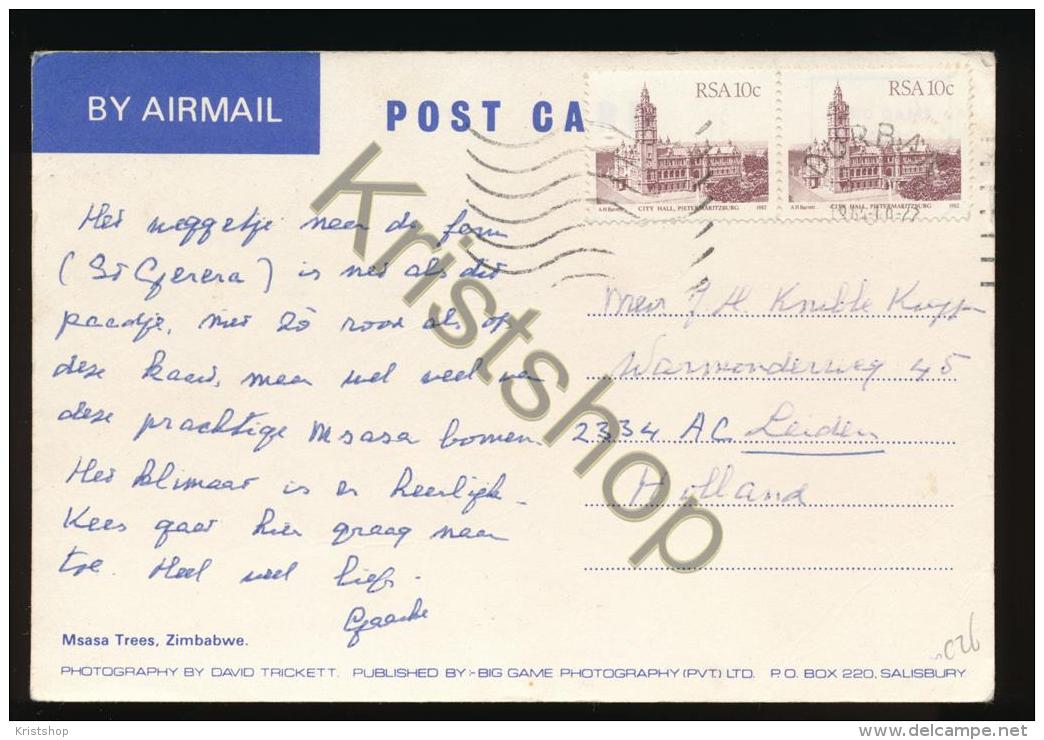 BY AIRMAIL
POST CA
RSA 10c
RSA 10c
A H Barrett CITY HALL, PIETERMARITZBURG 1982
A H Barrett CITY HALL, PIETERMARITZBURG 1982
DURBAN
Het weggetje naar de farm
(St Gerera) is net als dit
paadje, niet zo rood als op
deze kaart, maar wel veel van
deze prachtige Msasa bomen.
Het klimaat is er heerlijk.
Kees gaat hier graag naar
toe. Heel veel liefs.
Mevr J. H.
Warmonderweg 45
2334 AC Leiden
Holland
Msasa Trees, Zimbabwe.
PHOTOGRAPHY BY DAVID TRICKETT. PUBLISHED BY:- BIG GAME PHOTOGRAPHY (PVT.) LTD. P.O. BOX 220, SALISBURY
Kristshop
Kristshop
delcampe.net